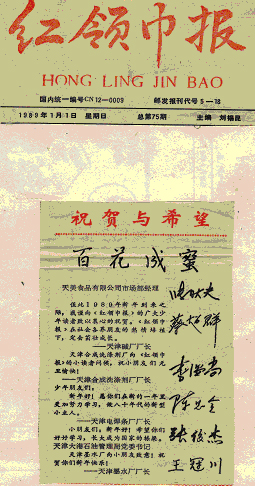 红领巾报
HONG LING JIN BAO
国内统一编号CN12—0009 邮发报刊代号5—18
1989年1月1日 星期日 总第75期 主编 刘锡昆
祝贺与希望
百花成蜜
天美食品有限公司市场部经理
值此1989年新年到来之
际，我谨向《红领巾报》的广大少
年读者致以衷心的祝贺。《红领巾
报》在社会各界朋友的热情扶植下，
——天津碱厂厂长
天津合成洗涤剂厂向《红领巾
报》的小读者问候，祝小朋友们元
旦愉快！
——天津合成洗涤剂厂厂长
少年朋友们：
新年好！愿你们在新的一年里
更加努力学习，做八十年代的新型
小主人。
——天津电焊条厂厂长
小朋友们，新年好！希望你们
好好学习，长大成为国家的栋梁。
天津大港石油管理局党委书记
天津墨水厂向小朋友致意！祝
贺你们新年快乐！
——天津墨水厂厂长
蔡
群
李
陈
张俊杰
王冠川